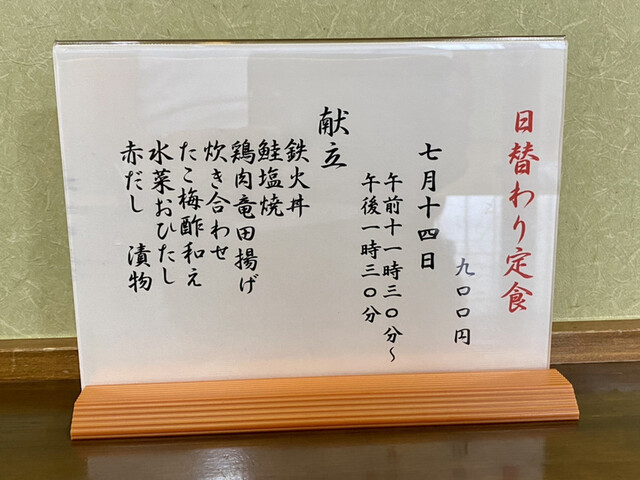 日替わり定食
九〇〇円
七月十四日
午前十一時三〇分〜
午後一時三〇分
献立
鉄火丼
鮭塩焼
鶏肉竜田揚げ
炊き合わせ
たこ梅酢和え
水菜おひたし
赤だし　漬物